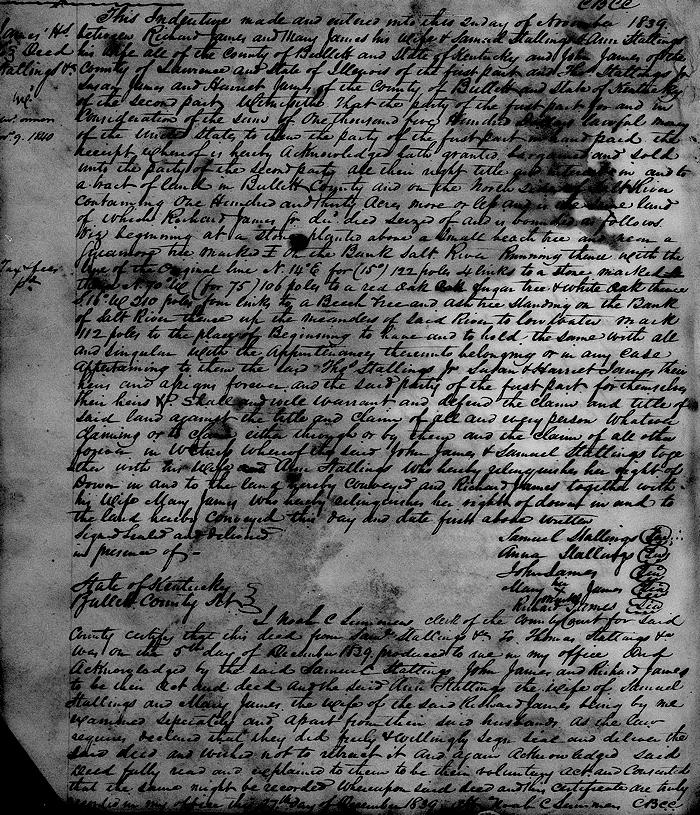 CBCC
This Indenture made and entered into this 2nd day of November 1839
between Richard James and Mary James his wife & Samuel Stallings & Ann Stallings
his wife all of the County of Bullitt and State of Kentucky and John James of the
County of Lawrence and State of Illinois of the first part and Thos. Stallings Jr
Susan James and Harriet James of the County of Bullitt and State of Kentucky
of the second party Witnesseth that the party of the first part for and in
Consideration of the sum of One thousand five Hundred Dollars lawful money
of the United States to them the party of the first part in hand paid the
receipt whereof is hereby Acknowledged hath granted bargained and sold
unto the party of the second party all their right title and interest in and to
a tract of land in Bullitt County and on the North Side of Salt River
containing One Hundred and thirty Acres more or less and is the same land
of which Richard James Sr died seized of and is bounded as follows
Viz beginning at a stone planted above a small beach tree and from a
Sycamore tree marked on the Bank Salt River Running thence with the
line of the Original line N. 14° E for (15°) 122 poles 4 links to a stone marked
thence N. 70° W (for 75) 106 poles to a red Oak Sugar tree & White Oak thence
S. 16° W 210 poles four links to a Beech Tree and Ash tree Standing on the Bank
of Salt River thence up the meanders of said River to low water mark
112 poles to the place of Beginning to have and to hold the same with all
and singular with the Appurtenances thereunto belonging or in any case
Appertaining to them the said Thos Stallings Jr Susan & Harriet James their
heirs and assigns forever and the said party of the first part for themselves
their heirs &c. Shall and will warrant and defend the claim and title of
said land against the title and claim of all and every person Whatever
claiming or to claim either through or by them and the claim of all other
forever in Witness whereof the said John James & Samuel Stallings toge
ther with his wife and Ann Stallings who hereby relinquishes her right of
Dower in and to the land hereby Conveyed and Richard James together with
his Wife Mary James who hereby relinquishes her right of dower in and to
the land hereby conveyed this day and date first above written
Signed sealed and delivered
in presence of —
Samuel Stallings (Seal)
Anna Stallings (Seal)
John James (Seal)
Mary her James (Seal)
Richard James (Seal)
State of Kentucky
Bullitt County Sct
I Noah C Summers clerk of the County Court for said
County certify that this deed from Saml Stallings &c To Thomas Stallings &c
was on the 5th day of December 1839 produced to me in my office and
Acknowledged by the said Samuel Stallings John James and Richard James
to be their Act and deed and the said Ann Stallings the Wife of Samuel
Stallings and Mary James the Wife of the said Richard James being by me
examined seperately and apart from their said husbands as the law
requires declared that they did freely & Willingly sign seal and deliver the
said deed and wished not to retract it and again Acknowledged said
Deed fully read and explained to them to be their voluntary Act and Consented
that the same might be recorded Whereupon said deed and this certificate are truly
recorded in my office this 27th day of December 1839. Att Noah C Summers CBCC
James' Hs
Deed
Stallings &c
9. 1840
Tax & fees
pd